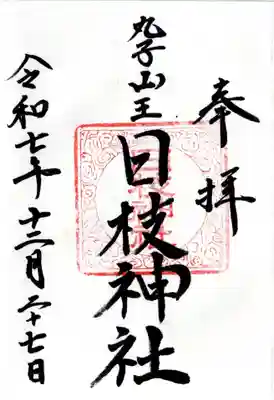 奉拝
丸子山王
日枝神社
令和七年十二月二十七日